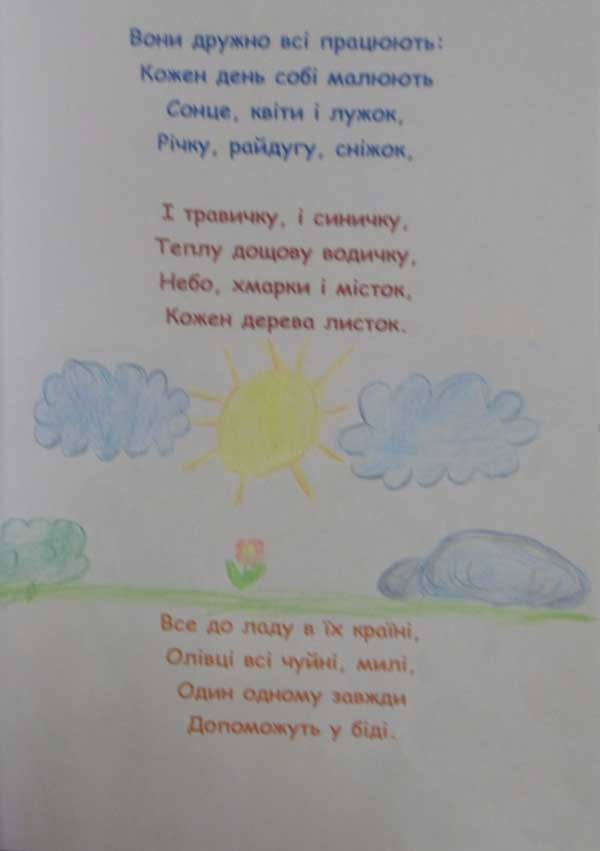 Вони дружно всі працюють:
Кожен день собі малюють
Сонце, квіти і лужок,
Річку, райдугу, сніжок,
І травичку, і синичку,
Теплу дощову водичку,
Небо, хмарки і місток,
Кожен дерева листок.
Все до ладу в їх країні,
Олівці всі чуйні, милі,
Один одному завжди
Допоможуть у біді.